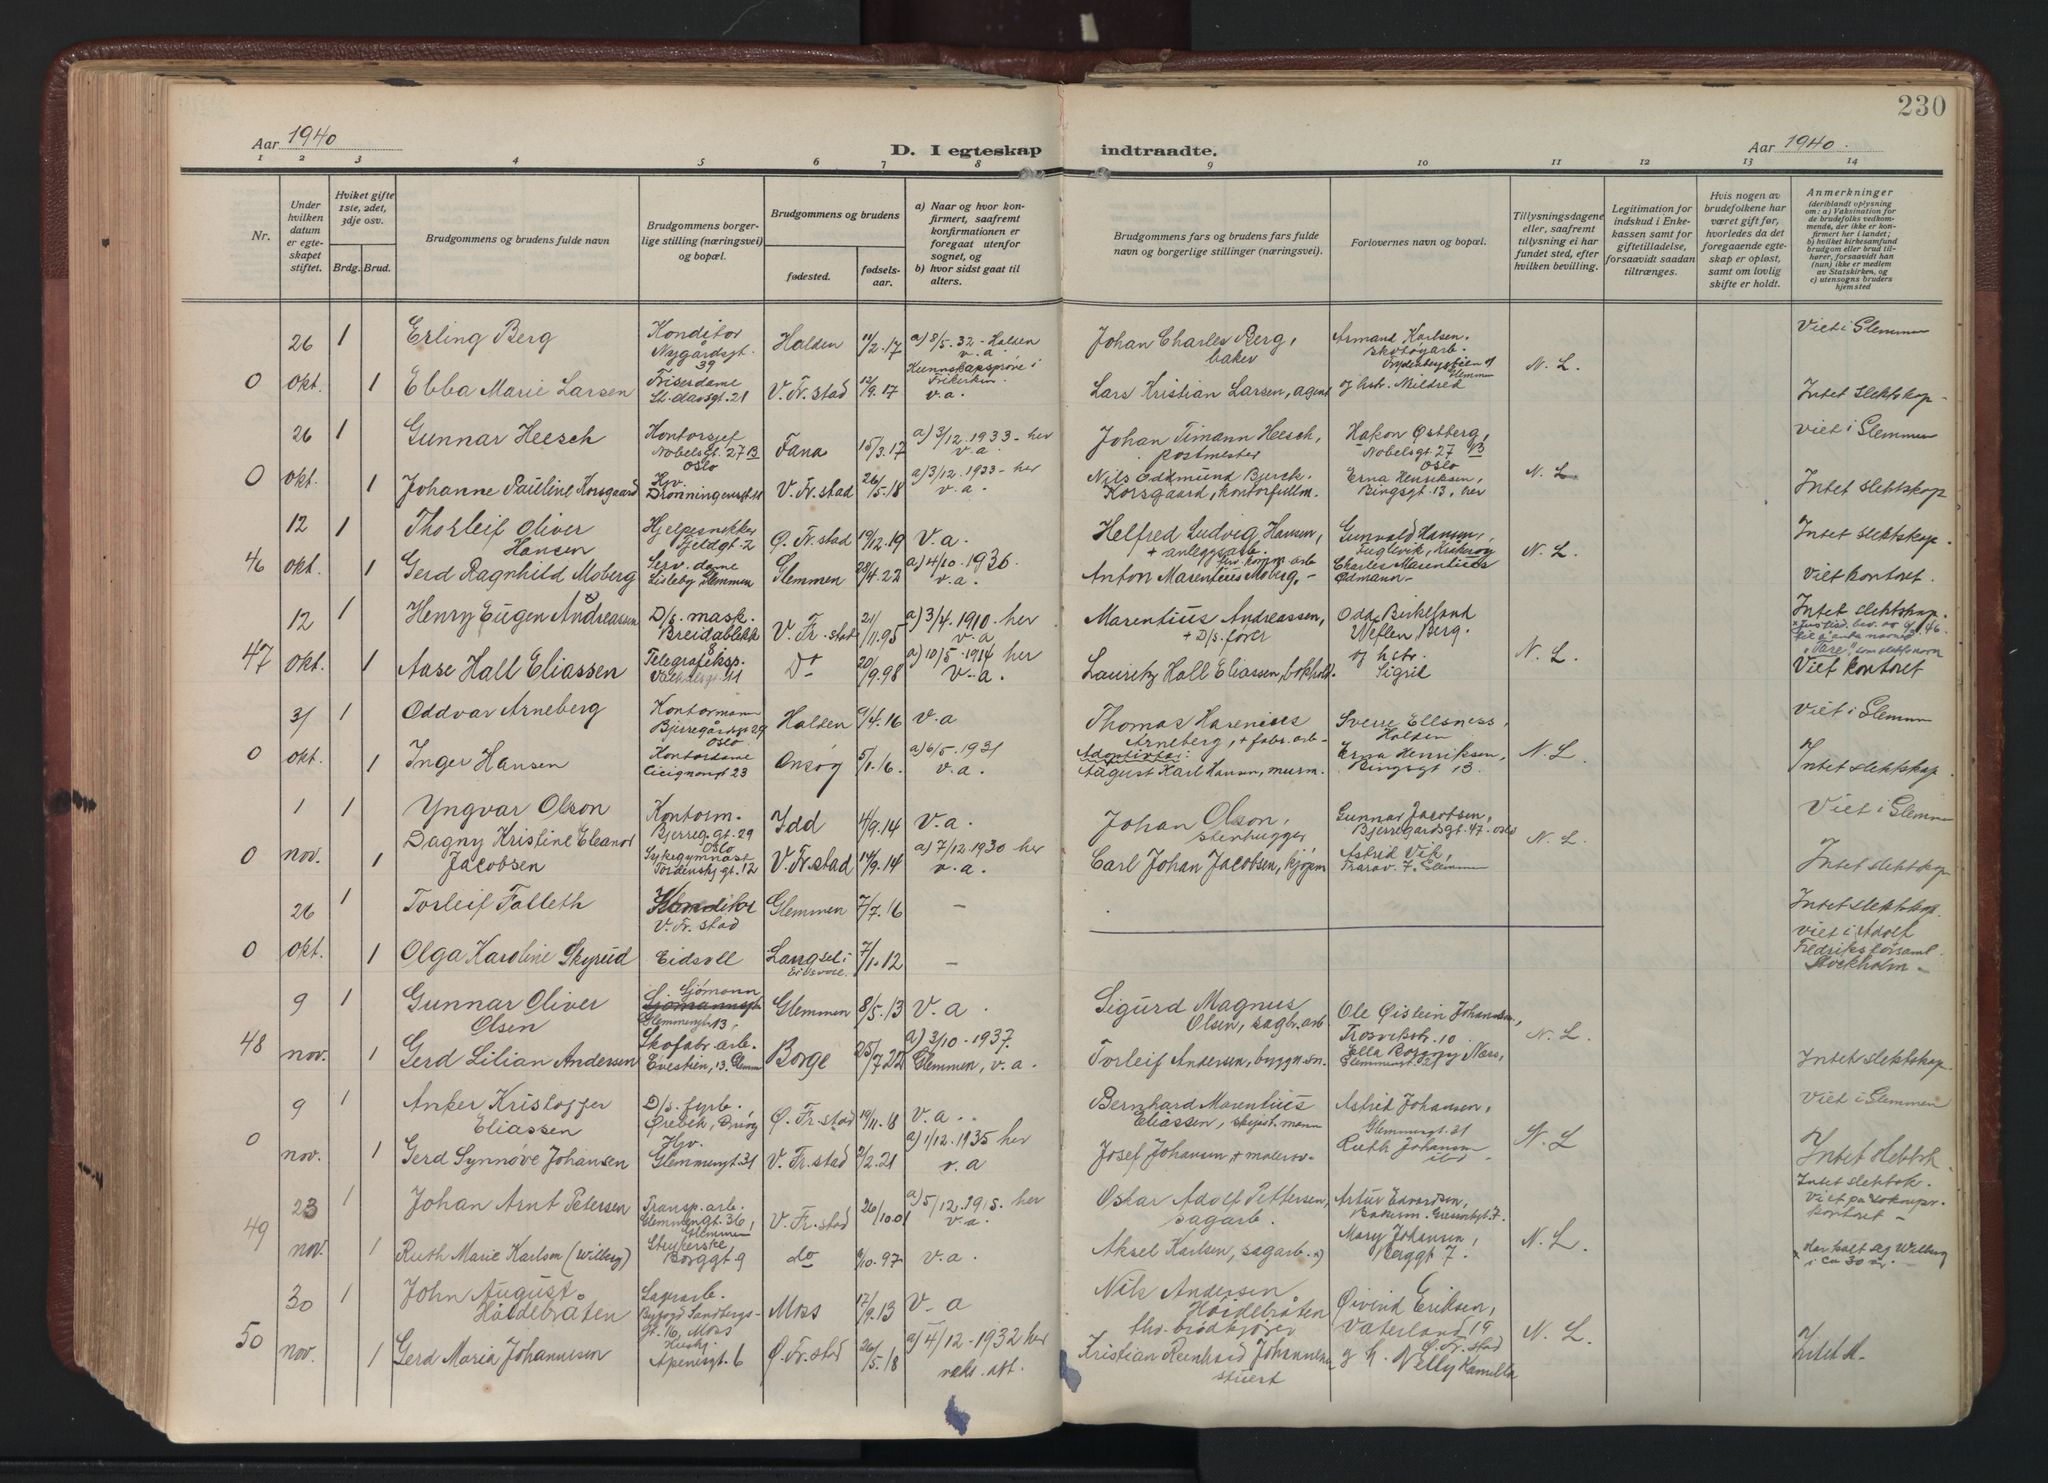 230
Aar 1940
D. I egteskap indtraadte.
Aar 1940.
1 2 3 4 5 6 7 8 9 10 11 12 13 14
Nr.
Under hvilken datum er egteskapet stiftet.
Hviket gifte 1ste, 2det, 3dje osv.
Brdg. Brud.
Brudgommens og brudens fulde navn
Brudgommens borgerlige stilling (næringsvei) og bopæl.
Brudgommens og brudens
fødested.
fødselsaar.
a) Naar og hvor konfirmert, saafremt konfirmationen er foregaat utenfor sognet, og
b) hvor sidst gaat til alters.
Brudgommens fars og brudens fars fulde navn og borgerlige stillinger (næringsvei).
Forlovernes navn og bopæl.
Tillysningsdagene eller, saafremt tillysning ei har fundet sted, efter hvilken bevilling.
Legitimation for indskud i Enkekassen samt for giftetilladelse, forsaavidt saadan tiltrænges.
Hvis nogen av brudefolkene har været gift før, hvorledes da det foregaaende egteskap er opløst, samt om lovlig skifte er holdt.
Anmerkninger (deriblandt oplysning om: a) Vaksination for de brudefolks vedkommende, der ikke er konfirmert her i landet; b) hvilket kirkesamfund brudgom eller brud tilhører, forsaavidt han (hun) ikke er medlem av Statskirken, og c) utensogns bruders hjemsted
26 1 Erling Berg Konditor Nygårdsgt. 39 Halden 11/2.17 a) 8/5.32 - Halden v.a. Johan Charles Berg, baker Armand Karlsen, skotøyarb. Viet i Glemmen
0 okt. 1 Ebba Marie Larsen Frisørdame St. Olavsgt. 21 V. Fr.stad 12/9.17 Kunnskapsprøve i Frikirken v.a. Lars Kristian Larsen, agent og hstr. Mildred N. L. Intet slektskap
26 1 Gunnar Heesch Kontorsjef Nobelsgt. 27 B Oslo Fana 15/3.17 a) 3/12.1933 - her v.a. Johan Timann Heesch, postmester Hakon Østberg, Nobelsgt. 27 B Oslo Viet i Glemmen
0 okt. 1 Johanne Pauline Korsgaard Hjv. Dronningensgt. 11 V. Fr.stad 26/5.18 a) 3/12.1933 - her v.a. Nils Oddmund Bjerck Korsgaard, kontorfullm. Erna Henriksen, Bingsgt. 13, her N. L. Intet slektskap
12 1 Thorleif Oliver Hansen Hjelpesnekker Fjeldgt. 2 Ø. Fr.stad 19/12.19 v.a. Helfred Ludvig Hansen, + anleggsarb. Gunvald Hansen, Fuglevik, Kråkerøy Intet slektskap.
46 okt. 1 Gerd Ragnhild Moberg Serv. dame Lisleby Glemmen Glemmen 20/4.22 a) 4/10.1936. v.a. Anton Marentius Moberg, Charles Marentius Ødmann N. L. Viet kontoret.
12 1 Henry Eugen Andreassen D/s. mask. Breidablikk V. Fr.stad 21/11.95 a) 3/4.1910. her v.a Marentius Andreassen, + D/s. fører Odd Birkeland Weflen Berg. Intet slektskap.
47 okt. 1 Aase Hall Eliassen Telegrafeksp. 11 Do 20/9.98 a) 10/5.1914 her v.a. Lauritz Hall Eliassen, bokhold. og hstr. Sigrid N. L. Viet kontoret
31 1 Oddvar Arneberg Kontormann Bjerregårdsgt. 29 Oslo Halden 9/4.16 v.a Thomas Harenius Arneberg, + fabr.arb. Sverre Ellsness, Halden Viet i Glemmen
0 okt. 1 Inger Hansen Kontordame Cicignongt 23 Onsøy 5/1.16. a) 6/5.1931 v.a. Adoptivfar: August Karl Hansen, murm. Erna Henriksen, Bingsgt 13. N. L. Intet slektskap
1 1 Yngvar Olson Kontorm. Bjerreg. gt. 29 Oslo Idd 4/9.14 v.a. Johan Olson, stenhugger Gunnar Jacobsen, Bjerregårdsgt. 47. Oslo Viet i Glemmen
0 nov. 1 Dagny Kristine Eleanor Jacobsen Sykegymnast Tordenskj. gt. 12 V. Fr.stad 14/9.14 a) 7/12.1930 her v.a. Carl Johan Jacobsen, kjøpm Astrid Vik, Trarav. 7. Glemmen N. L. Intet slektskap
26 1 Torleif Falleth Konditor V. Fr.stad Glemmen 7/7.16 — Intet slektskap.
0 okt. 1 Olga Karoline Skyrud Eidsvoll Langset i Eidsvoll. 7/1.12 — viet i Adolf Fredriks forsaml. Stockholm
9 1 Gunnar Oliver Olsen Sjømann Glemmengt 13, Glemmen 8/5.13 v.a. Sigurd Magnus Olsen, sagbr.arb Ole Øistein Johannsen, Trosvikstr. 10
48 nov. 1 Gerd Lilian Andersen Skofabr. arb. Evestien, 13. Glemm Borge 25/7.22 a) 3/10.1937. Glemmen, v.a. Torleif Andersen, byggn.sn. Ella Næss, N. L. Intet slektskap.
9 1 Anker Kristoffer Eliassen D/s. fyrb. Ørebek, Onsøy Ø. Fr.stad 19/11.18 v.a. Bernhard Marentius Eliassen, mann Astrid Johansen, Glemmengt. 31 Viet i Glemmen
0 nov. 1 Gerd Synnøve Johansen Hjv. Glemmengt 31 V. Fr.stad 2/2.21 a) 1/12.1935 her v.a Josef Johansen, + malersv. Ruth Johansen N. L Intet slektsk.
23 1 Johan Arnt Petersen Transp.arb. Glemmengt. 36, Glemmen V. Fr.stad 26/10.01 a) 5/12.1915. her v.a. Oskar Adolf Pettersen, sagarb. Artur Edvardsen, Intet slektsk. Viet på sokneprkontoret
49 nov. 1 Ruth Marie Karlsen (Wilberg) Strykerske Borggt 9 do 6/10.97 v.a. Aksel Karlsen, sagarb. Mary Johansen, Berggt 7. N. L. Har kalt sig Wilberg i ca 30 år.
30 1 John August Høidebråten Lagerarb. Byfogd Sandbergsgt. 16, Moss Moss 17/9.13 v.a Nils Andersen Høidebråten fhv. brødkjører Øivind Eriksen, Vaterland 19 Ø. Fr.stad
50 nov. 1 Gerd Maria Johannesen Hushj. Apenesgt. 6 Ø. Fr.stad 26/5.18 a) 4/12-1932 her v.a. Kristian Reinhard Johannesen stuert og h. Nelly Kamilla N. L. Intet sl.